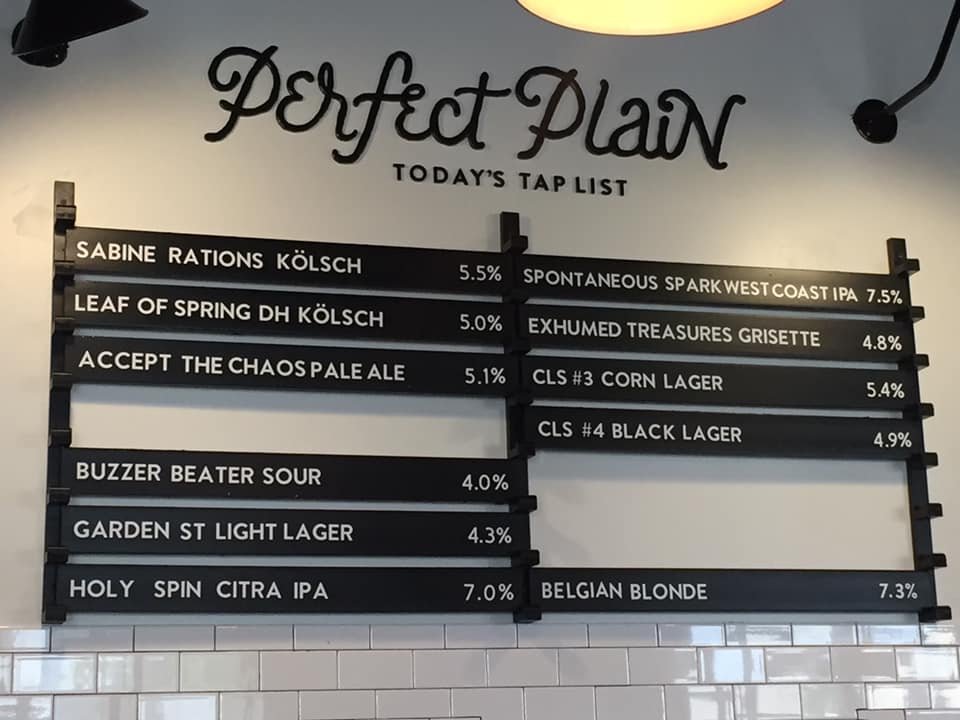 Perfect Plain
TODAY'S TAP LIST
SABINE RATIONS KÖLSCH 5.5%
LEAF OF SPRING DH KÖLSCH 5.0%
ACCEPT THE CHAOS PALE ALE 5.1%
BUZZER BEATER SOUR 4.0%
GARDEN ST LIGHT LAGER 4.3%
HOLY SPIN CITRA IPA 7.0%
SPONTANEOUS SPARK WEST COAST IPA 7.5%
EXHUMED TREASURES GRISETTE 4.8%
CLS #3 CORN LAGER 5.4%
CLS #4 BLACK LAGER 4.9%
BELGIAN BLONDE 7.3%